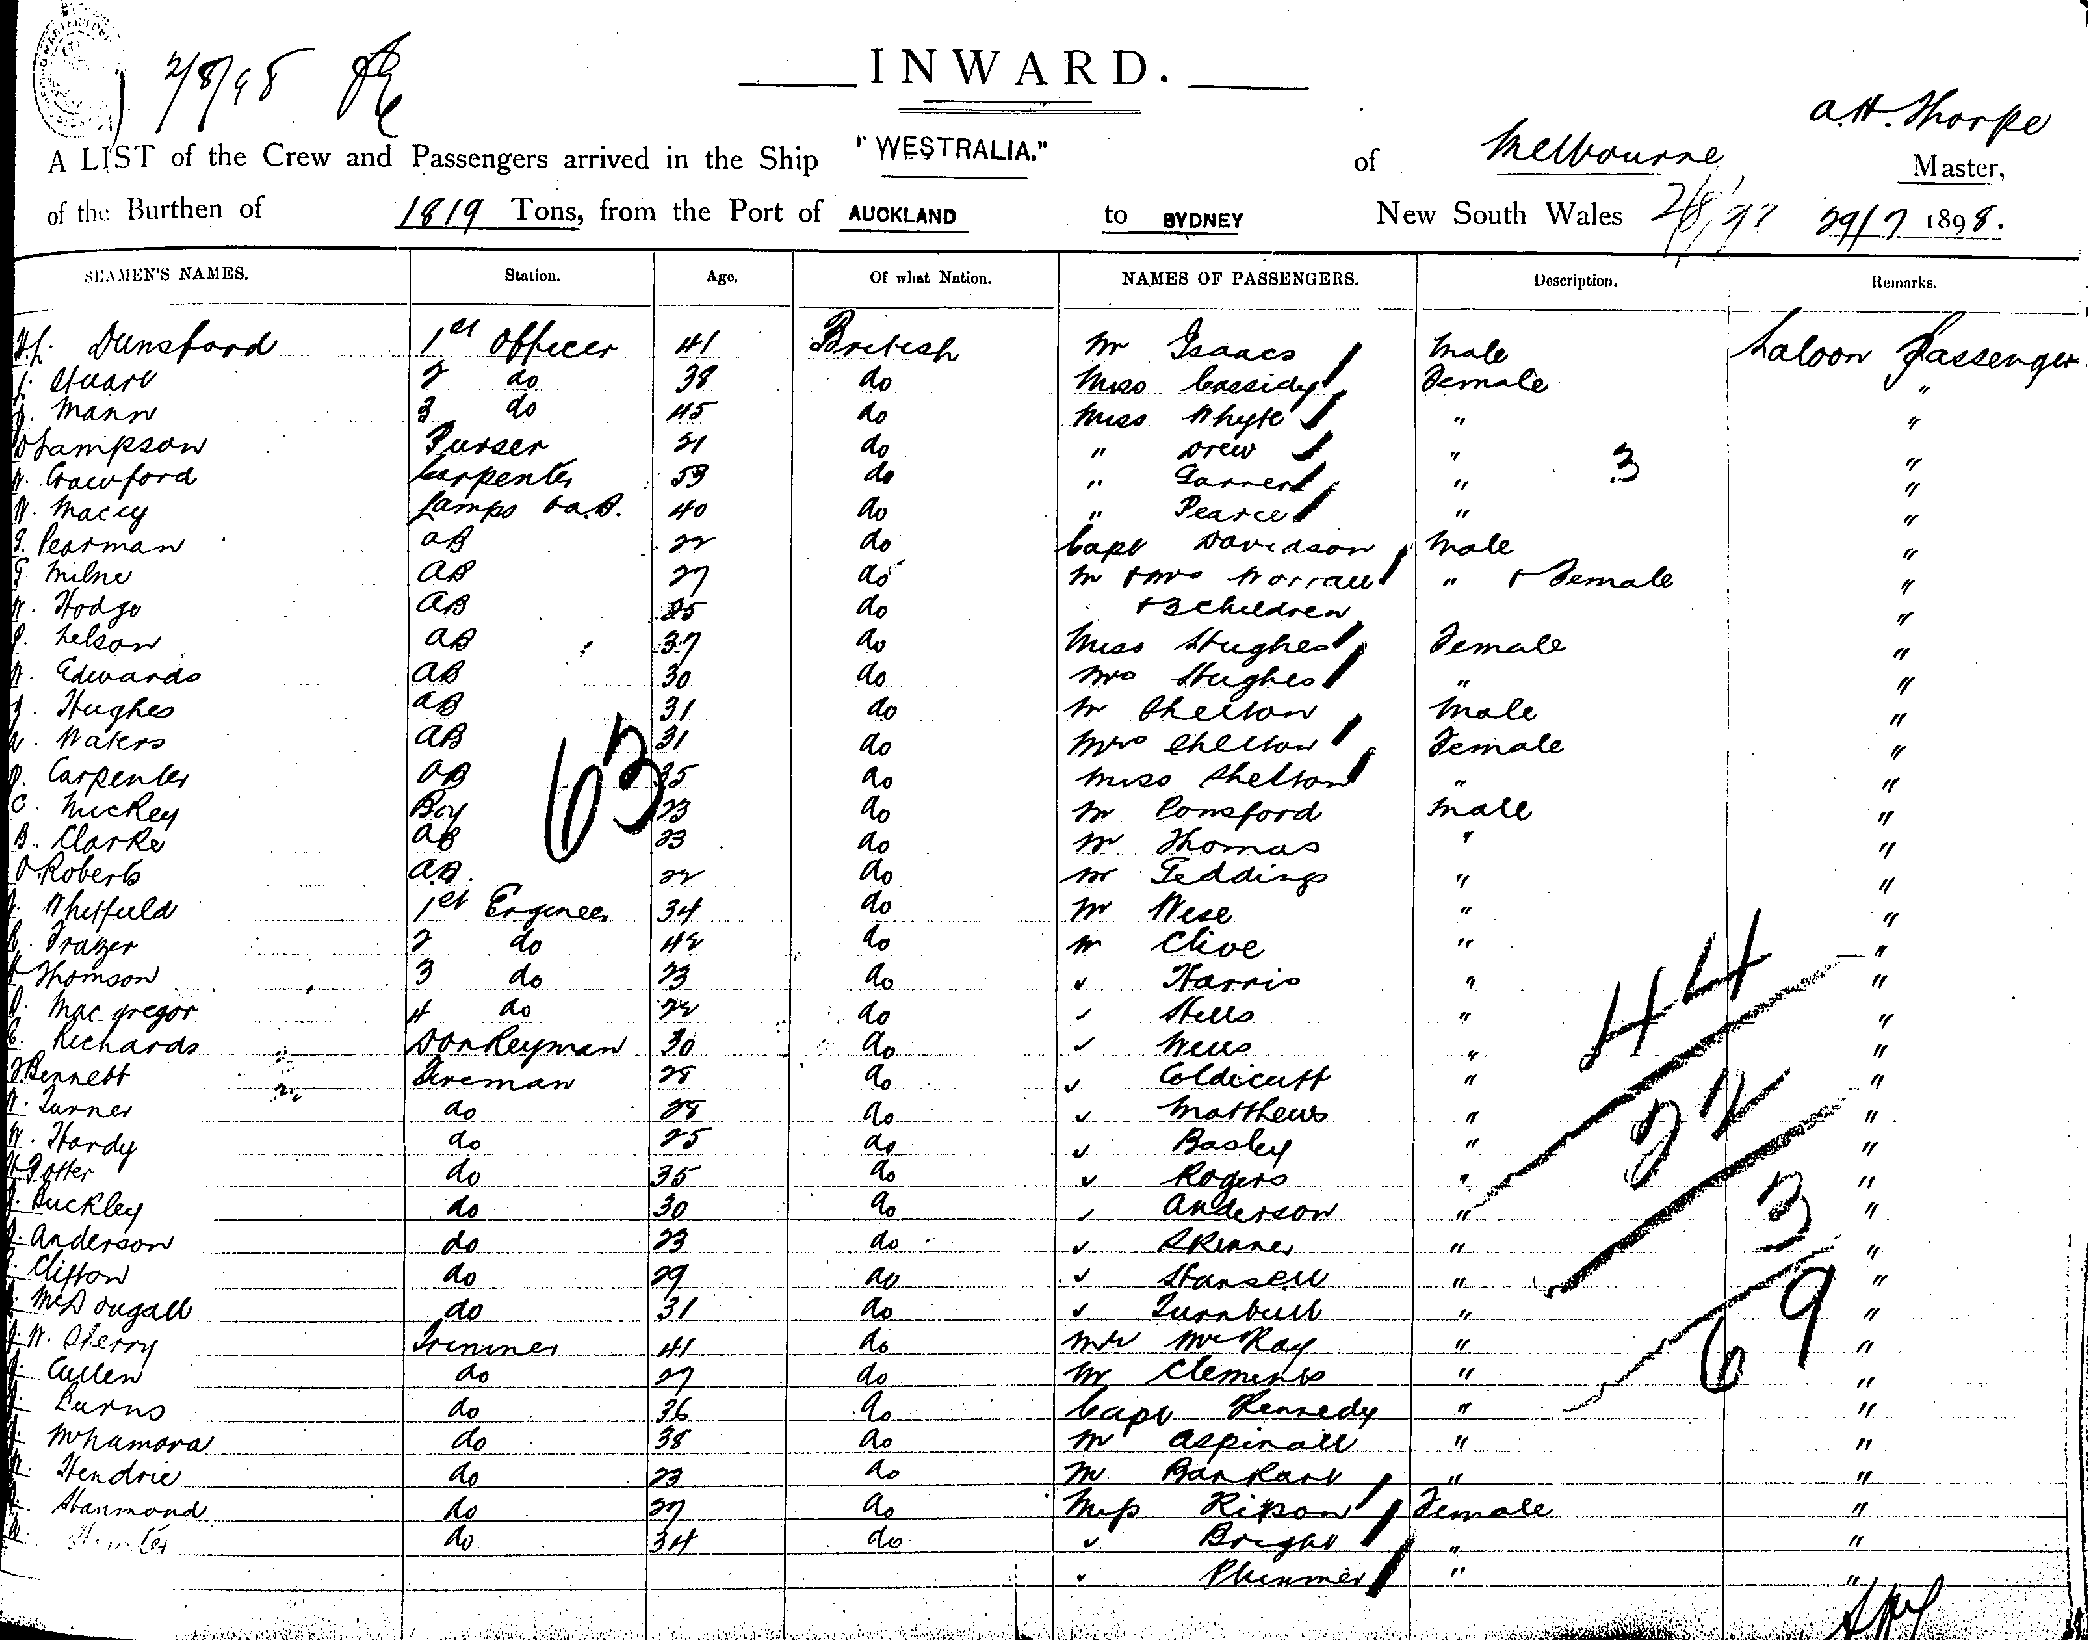 2/8/98
INWARD.
A. H. Thorpe
A LIST of the Crew and Passengers arrived in the Ship "WESTRALIA." of Melbourne, Master,
of the Burthen of 1819 Tons, from the Port of AUCKLAND to SYDNEY New South Wales 2/8/98 29/7 1898.
SEAMEN'S NAMES. Station. Age. Of what Nation. NAMES OF PASSENGERS. Description. Remarks.
Dunsford 1st Officer 41 British Mr Isaacs Male Saloon Passenger
Stuart 2 do 38 do Miss Cassidy Female "
J. Mann 3 do 45 do Miss Whyte " "
Sampson Purser 21 do " Drew " "
W. Crawford Carpenter 53 do " " 3 "
W. Macey Lamps & a.B. 40 do " Pearce " "
Pearman aB 22 do Capt Davidson Male "
Milne aB 27 do Mr & Mrs Worrall " & Female "
Hodge aB 25 do & 3 children "
Nelson aB 37 do Miss Hughes Female "
W. Edwards aB 30 do Mrs Hughes " "
J. Hughes aB 31 do Mr Shelton Male "
Waters aB 31 do Mrs Shelton Female "
Carpenter aB 35 do Miss Shelton " "
63
C. Mickey Boy 23 do Mr Ponsford Male "
B. Clarke aB 23 do Mr Thomas " "
Roberts aB. 22 do Mr Teddings " "
Whitfield 1st Engineer 34 do Mr Wese " "
Frazer 2 do 42 do Mr Clive " "
Thomson 3 do 23 do " Harris " "
44
Macgregor 4 do 22 do " Hills " "
Richards Donkeyman 30 do " " "
Bennett Fireman 28 do " Coldicutt " "
Turner do 28 do " Matthews " "
22
W. Hardy do 25 do " Basley " "
Potter do 35 do " Rogers " "
Buckley do 30 do " Anderson " "
3
Anderson do 23 do " Skinner " "
Clifton do 29 do " Hansell " "
McDougall do 31 do " Turnbull " "
69
W. Sherry Trimmer 41 do Mr McKay " "
Cullen do 27 do Mr Clements " "
Burns do 36 do Capt Kennedy " "
McNamara do 38 do Mr Aspinall " "
Hendrie do 23 do Mr Bankart " "
Hanmond do 27 do Miss Rixon Female "
Hunter do 34 do " Bright " "
" Plummer " "